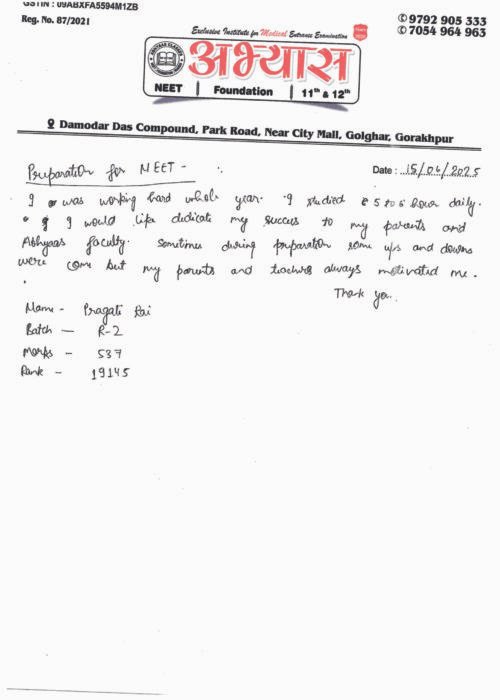 GSTIN : 09ABXFA5594M1ZB
Reg. No. 87/2021
9792 905 333
7054 964 963
Exclusive Institute for Medical Entrance Examination
अभ्यास
NEET | Foundation | 11th & 12th
Damodar Das Compound, Park Road, Near City Mall, Golghar, Gorakhpur
Preparation for NEET -
Date : 15/06/2025
I was working hard whole year. I studied 5 to 6 hour daily.
I would like dedicate my success to my parents and
Abhyaas faculty. Sometimes during preparation some ups and downs
were come but my parents and teachers always motivated me.
Thank you..
Name - Pragati Rai
Batch - R-2
Marks - 537
Rank - 19145